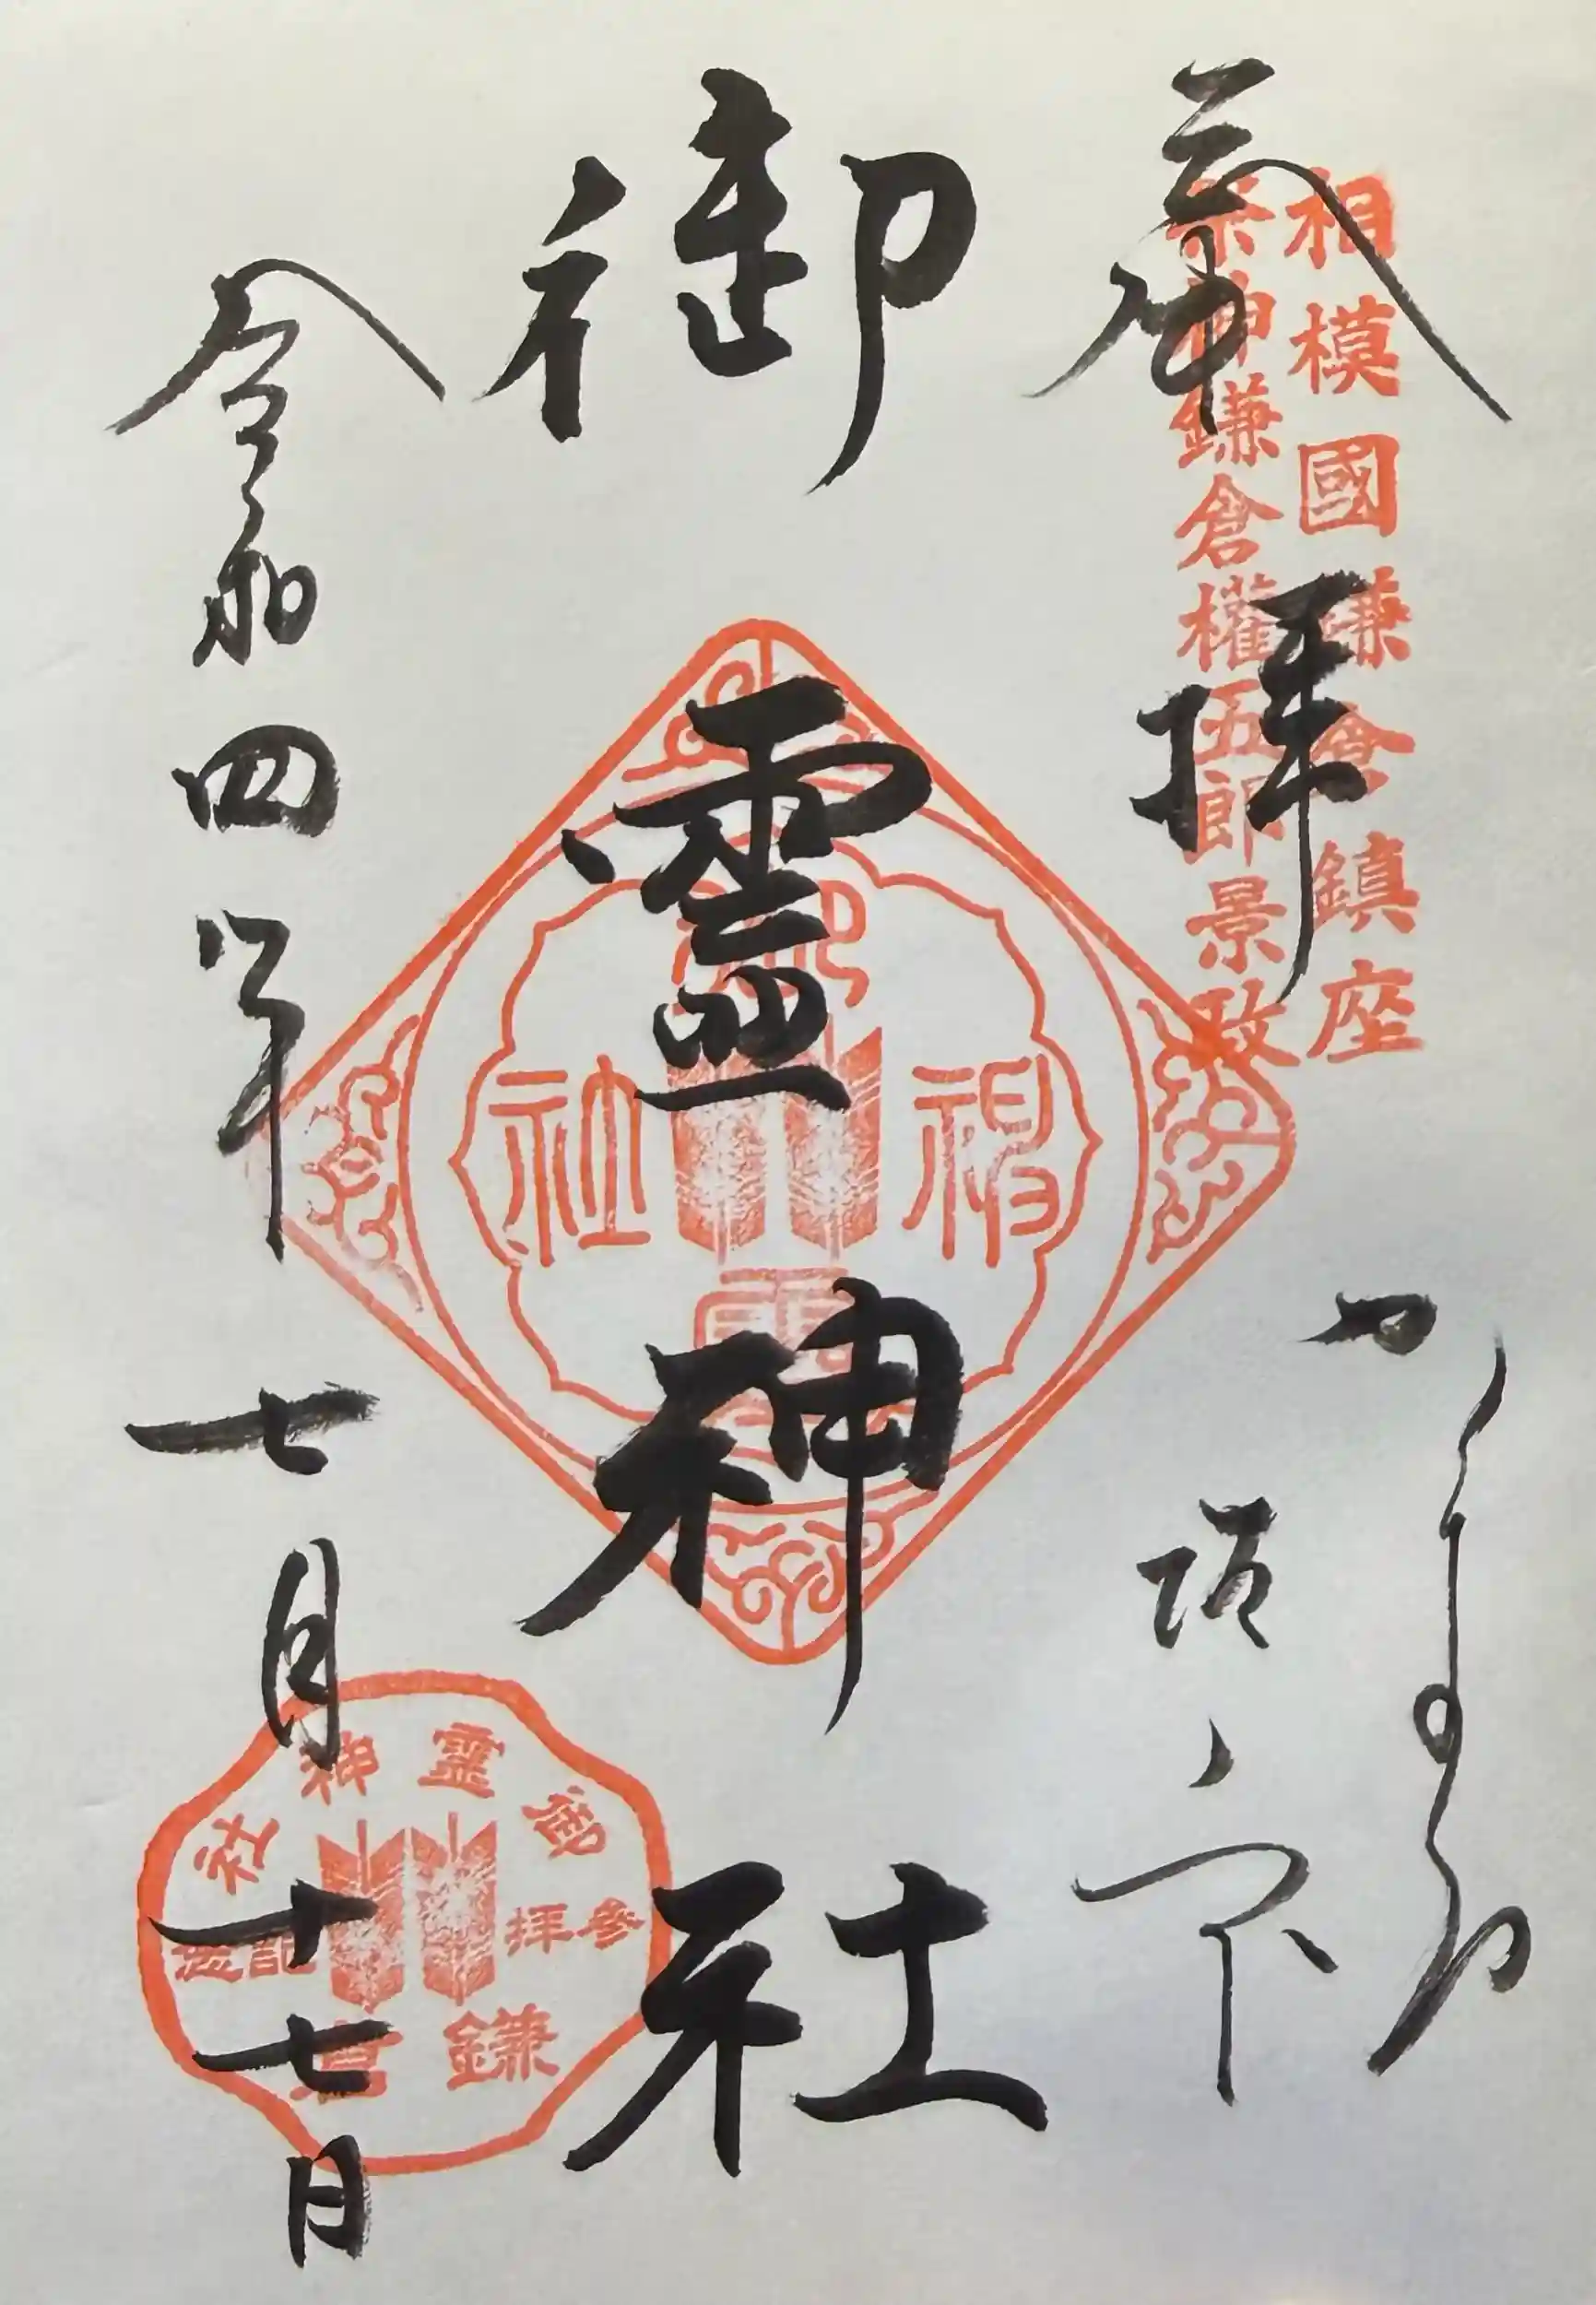 相模國鎌倉鎮座
祭神鎌倉權五郎景政
奉拝
かまくら
坂ノ下
御靈神社
神社
令和四年七月十七日
御靈神社
参拝記念
鎌倉